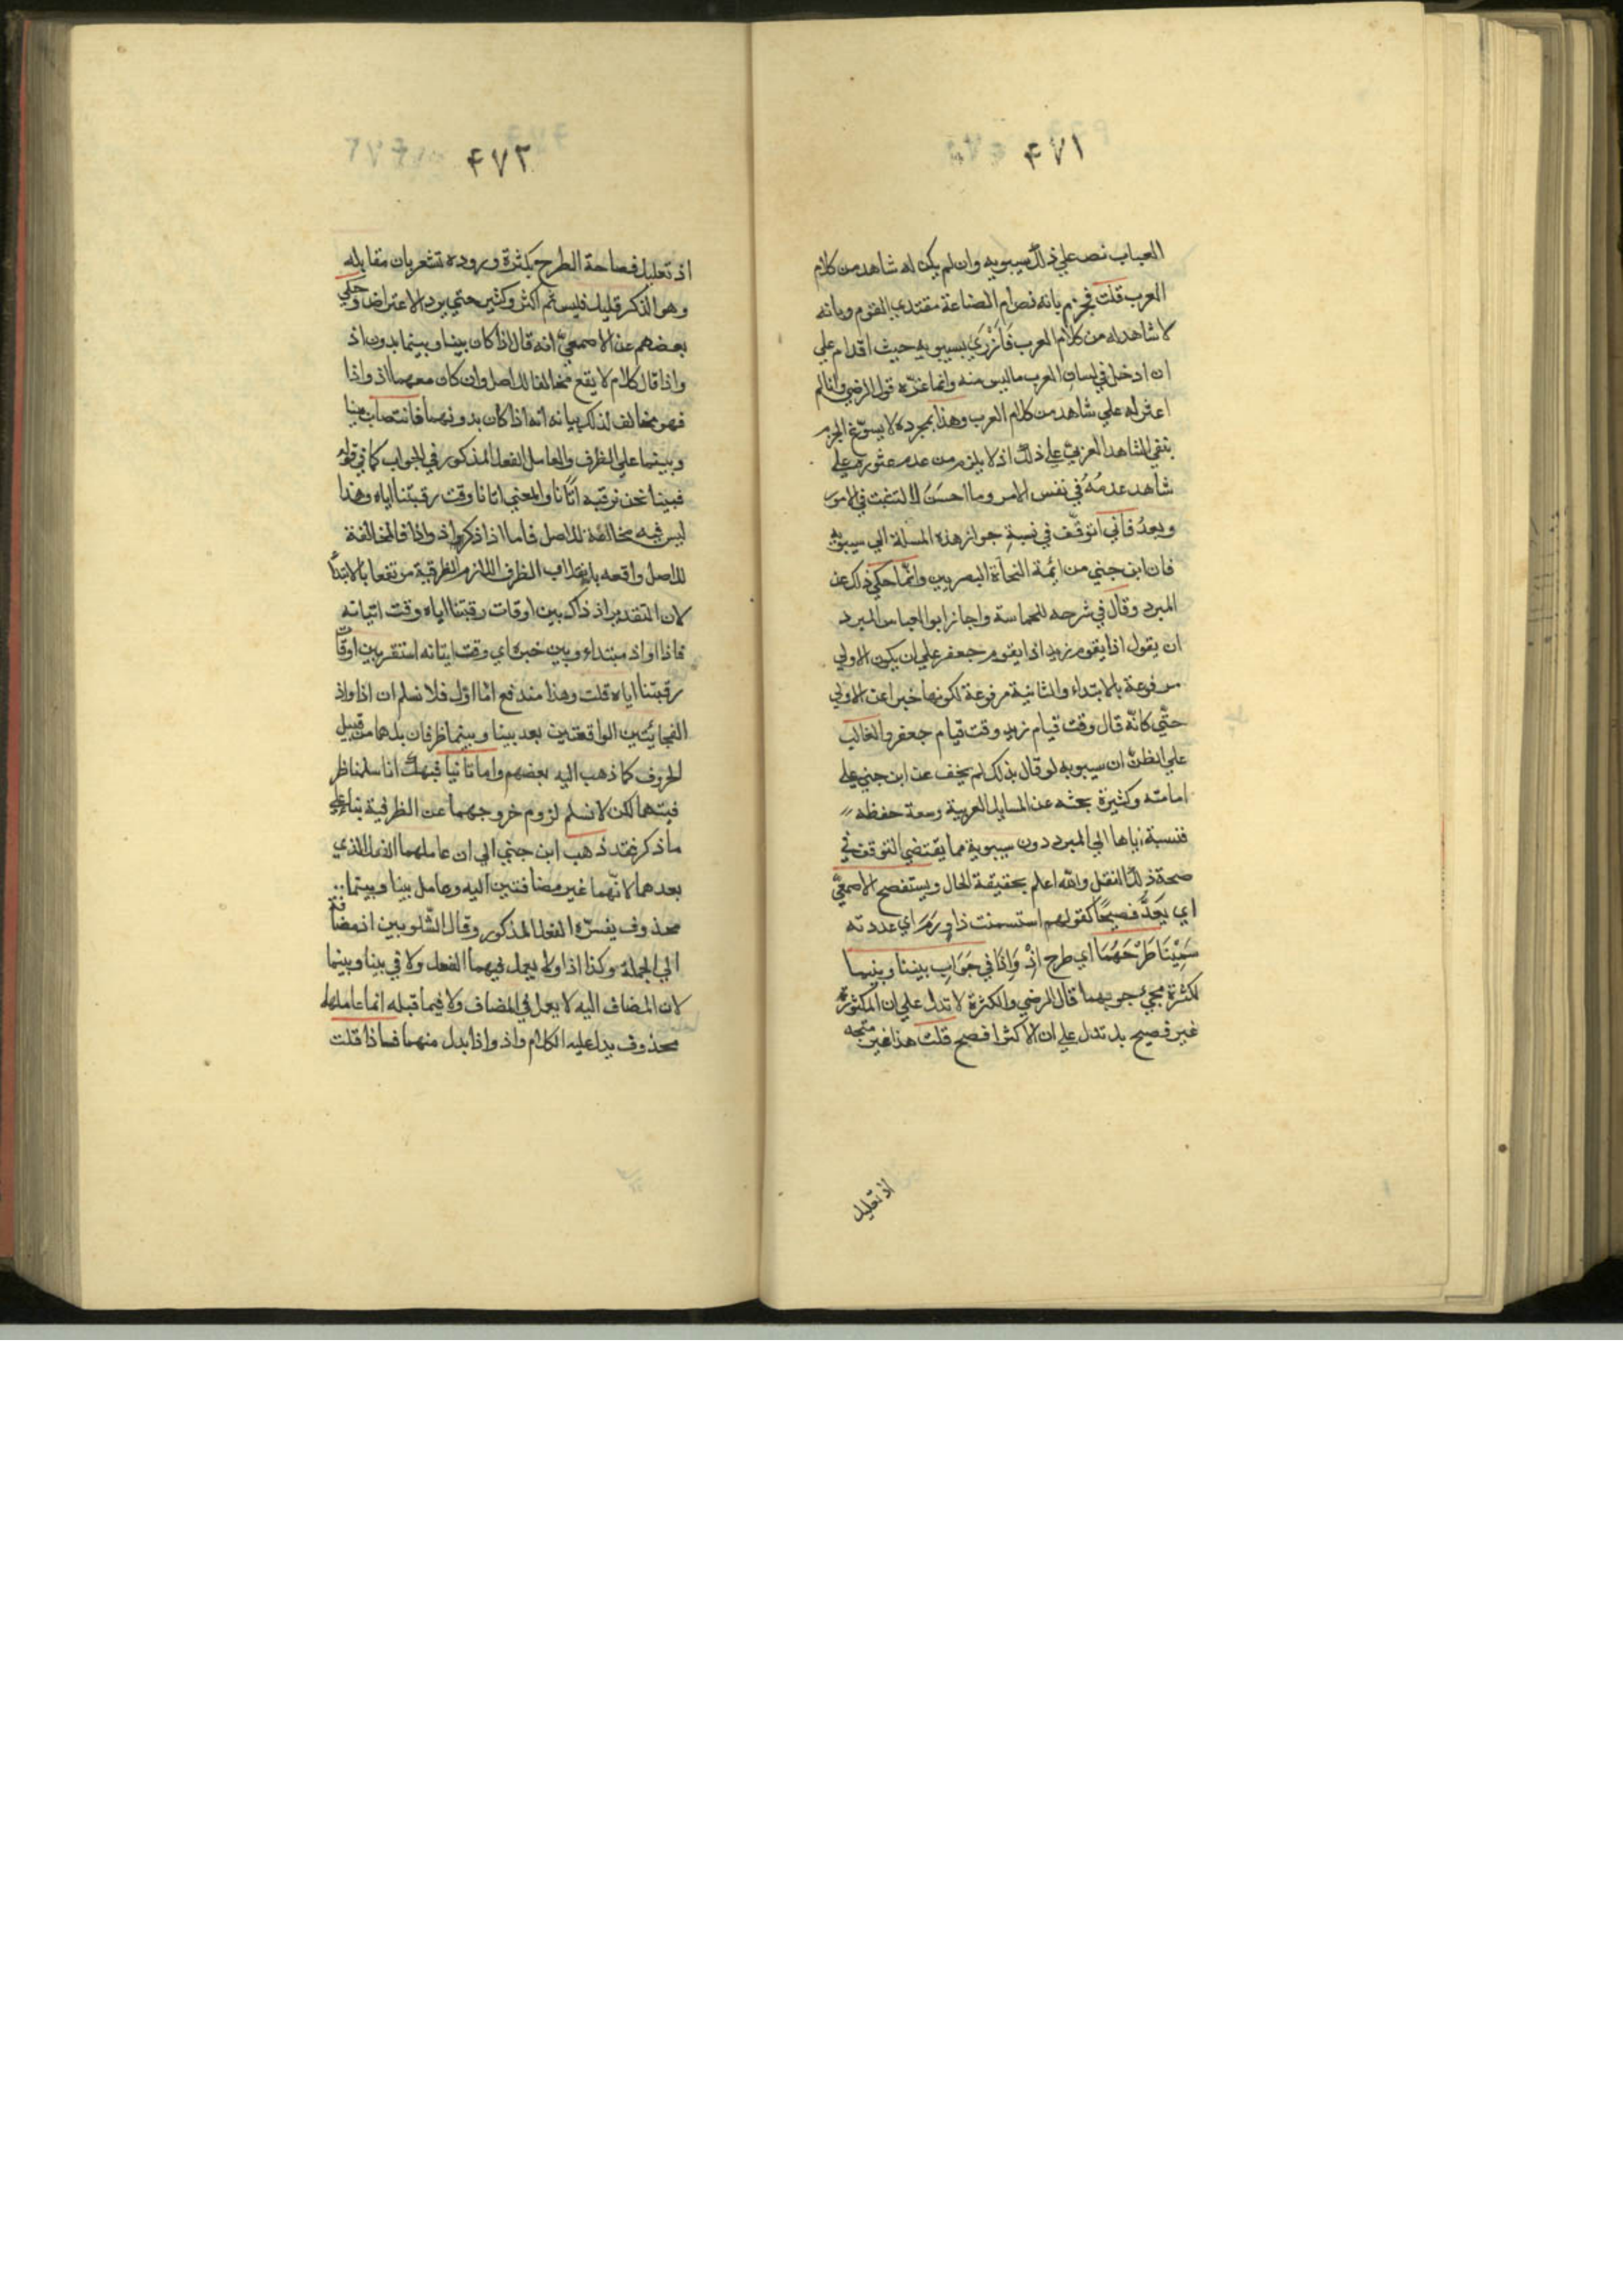 ٤٧١
العباب نص علي ذلك سيبويه وان لم يكن له شاهد من كلام
العرب قلت فجزم بانه نص امام الصناعة مقتدي القوم وبانه
لا شاهد له من كلام العرب فَازْرَي بسيبويه حيث اقدام علي
ان ادخل في لسان العرب ما ليس منه وانما غرّه قول الرضي وانا لم
اعثر له علي شاهد من كلام العرب وهذا بمجرده لا يسوّغ الجزم
بنفي الشاهد العربي علي ذلك اذ لا يلزم من عدم عثوره علي
شاهد عدمُهُ في نفس الامر وما احسَنُ التثبت في الامور
وبعدُ فاني اتوقّف في نسبة جواز هذه المسلة الي سيبويه
فان ابن جني من ائمة النحاة البصريين وانّما حكي ذلك عن
المبرد وقال في شرحه للحماسة واجاز ابو العباس المبرد
ان يقول اذا يقوم زيد اذا يقوم جعفر علي ان يكون الاولي
مرفوعة بالابتداء والثانية مرفوعة لكونها خبرا عن الاولي
حتّي كانّه قال وقت قيام زيد وقت قيام جعفر والغالب
علي الظنّ ان سيبويه لو قال بذلك لم يخف عن ابن جني علي
امامته وكثيرة بحثه عن المسايل العربية وسعة حفظه
فنسبة اياها الي المبرد دون سيبوية مما يقتضي التوقف في
صحة ذلك النقل والله اعلم بحقيقة الحال ويستفصح الاصمعيّ
اي يَعَدَّ فصيحًا كقولهم استسمنت ذا وَرَمَر اي عددته
سَمِيْنَا طَرْحَهُمَا اي طرح اِذْ وَاِذَا في جَوَابِ بيننا وبينما
لكثرة مجيء جوبهما قال الرضي والكثرة لا تدل علي ان المكثورة
غير فصيح بل تدل علي ان الاكثر افصح قلت هذا غير متجه
اذ تعليل
٤٧٢
اذ تعليل فصاحة الطرح بكثرة وروده تشعر بان مقابله
وهو الذكر قليل فليس ثم اكثر وكثير حتي يرد الاعتراض وحكي
بعضهم عن الاصمعيّ انه قال اذا كان بينا وبينما بدون اذ
واذا قال كلام لا يقع مخالفا للاصل وان كان معهما اذ واذا
فهو مخالف لذلك بيانه انه اذا كان بدونهما فانتصاب بينا
وبينما علي الظرف والعامل الفعل المذكور في الجواب كما في قوله
فبينا نحن نرقبه اتانا والمعني اتانا وقت رقبتنا اياه وهذا
ليس فيه مخالفة للاصل فاما اذا ذكر اذ واذا فالمخالفة
للاصل واقعه بانقلاب الظرف اللازم الظرفية مرتفعا بالابتدأ
لان التقدير اذ ذاك بين اوقات رقبتنا اياه وقت اتيانه
فاذا او اذ مبتداء وبين خبره اي وقت ايتانه استقر بين اوقات
رقبتنا اياه قلت وهذا مندفع امّا اوّل فلا نسلم ان اذا واذ
الفجائيتين الواقعتين بعد بينا وبينما ظرفان بل هما من قبيل
الحروف كما ذهب اليه بعضهم واما ثانيا فبهك انا سلمنا ظر
فيتهما لكن لا نسلم لزوم خروجهما عن الظرفية بناء علي
ما ذكر فقد ذهب ابن جني الي ان عاملهما الفعل الذي
بعدهما لانّهما غير مضافتين اليه وعامل بينا وبينما
محذوف يفسّره الفعل المذكور وقال الشّلوبين اذ مضافة
الي الجملة وكذا اذا ولا يعمل فيهما الفعل ولا في بينا وبينما
لان المضاف اليه لا يعمل في المضاف ولا فيما قبله انما عاملها
محذوف يدل عليه الكلام واذ واذا بدل منهما فاذا قلت